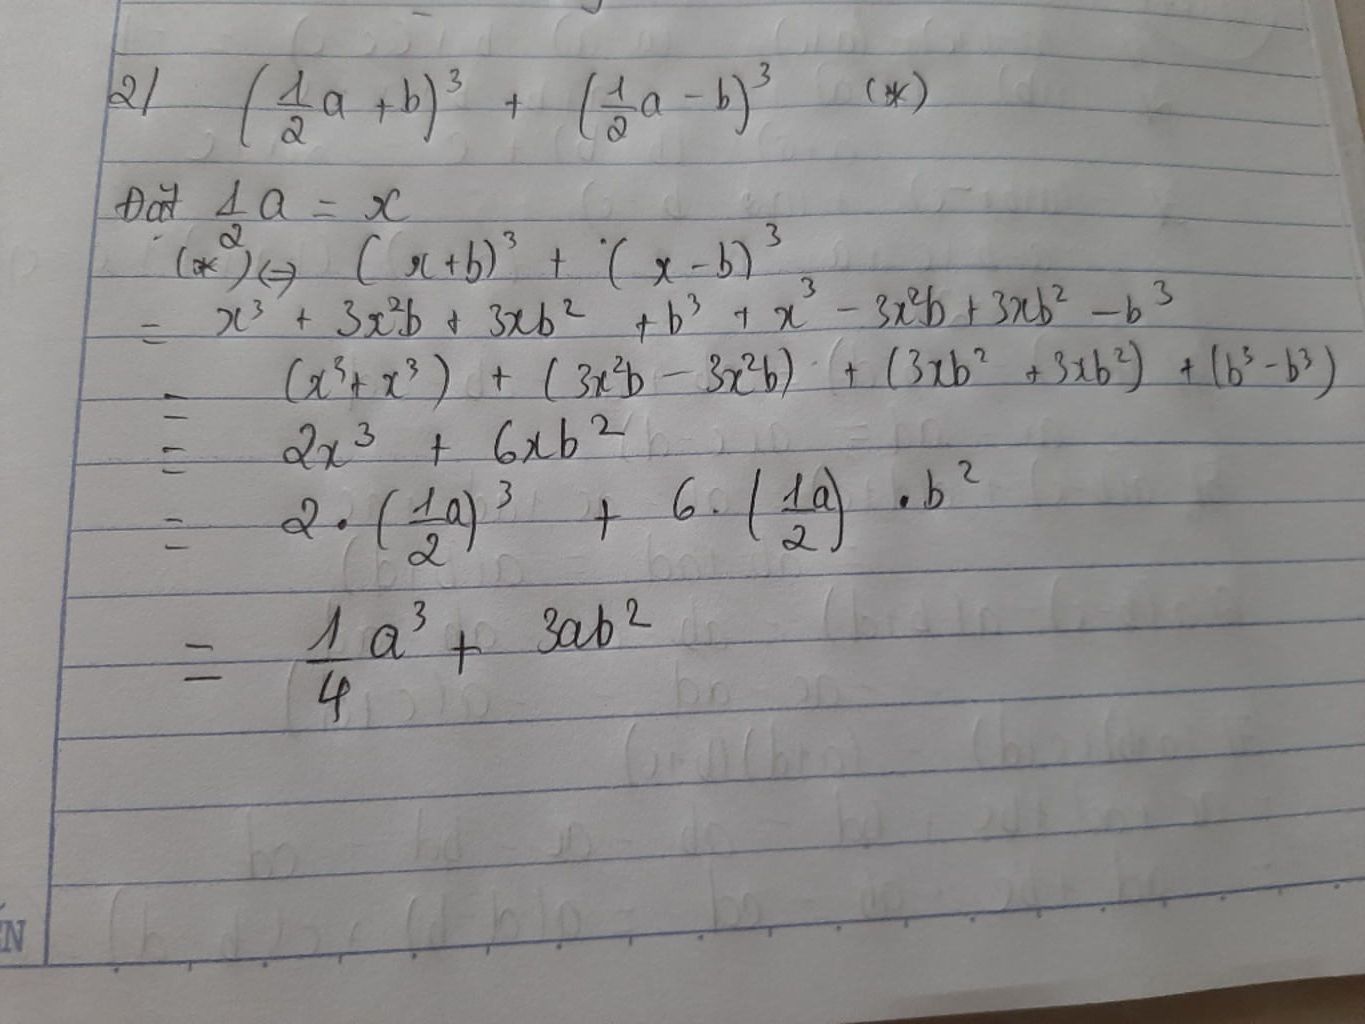 2/ (1/2 a + b)³ + (1/2 a - b)³ (*)
Đặt 1/2 a = x
(*) ⇔ (x+b)³ + (x-b)³
= x³ + 3x²b + 3xb² + b³ + x³ - 3x²b + 3xb² - b³
= (x³ + x³) + (3x²b - 3x²b) + (3xb² + 3xb²) + (b³ - b³)
= 2x³ + 6xb²
= 2 . (1/2 a)³ + 6 . (1/2 a) . b²
= 1/4 a³ + 3ab²